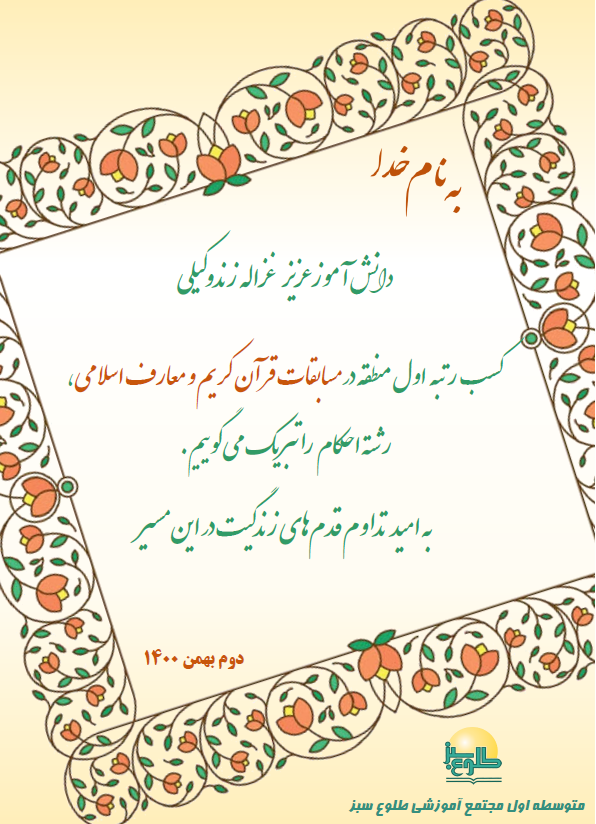 به نام خدا
دانش آموز عزیز غزاله زندوکیلی
کسب رتبه اول منطقه در مسابقات قرآن کریم و معارف اسلامی،
رشته احکام را تبریک می گوییم.
به امید تداوم قدم های زندگیت در این مسیر
دوم بهمن ۱۴۰۰
طلوع سبز
متوسطه اول مجتمع آموزشی طلوع سبز